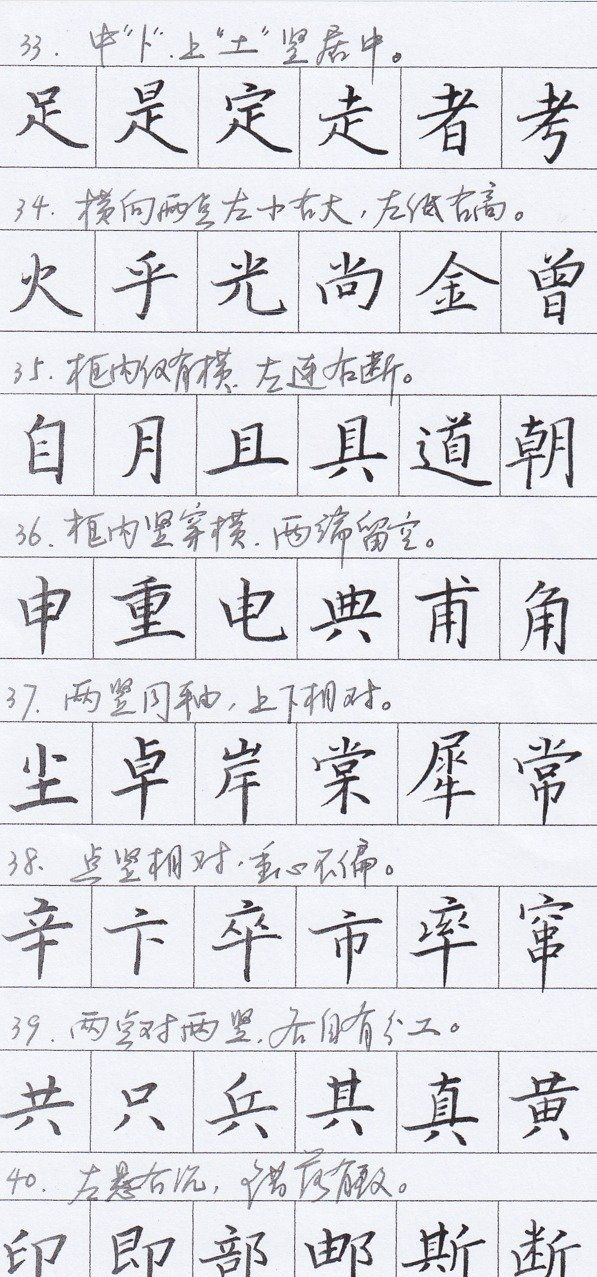 33. 中"卜"、上"土"竖居中。
足 是 定 走 者 考
34. 横向两点左小右大,左低右高。
火 乎 光 尚 金 曾
35. 框内仅有横、左连右断。
自 月 且 具 道 朝
36. 框内竖穿横、两端留空。
申 重 电 典 甫 角
37. 两竖同轴,上下相对。
尘 卓 岸 棠 犀 常
38. 点竖相对,重心不偏。
辛 卞 卒 市 率 窜
39. 两点对两竖、各自有分工。
共 只 兵 其 真 黄
40. 左悬右沉,错落有致。
印 即 部 邮 斯 断